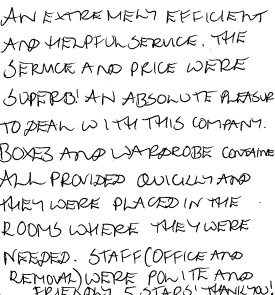 AN EXTREMELY EFFICIENT
AND HELPFUL SERVICE. THE
SERVICE AND PRICE WERE
SUPERB! AN ABSOLUTE PLEASUR
TO DEAL WITH THIS COMPANY.
BOXES AND WARDROBE CONTAINE
ALL PROVIDED QUICKLY AND
THEY WERE PLACED IN THE
ROOMS WHERE THEY WERE
NEEDED. STAFF (OFFICE AND
REMOVAL) WERE POLITE AND
FRIENDLY. 5 STARS! THANKYOU!